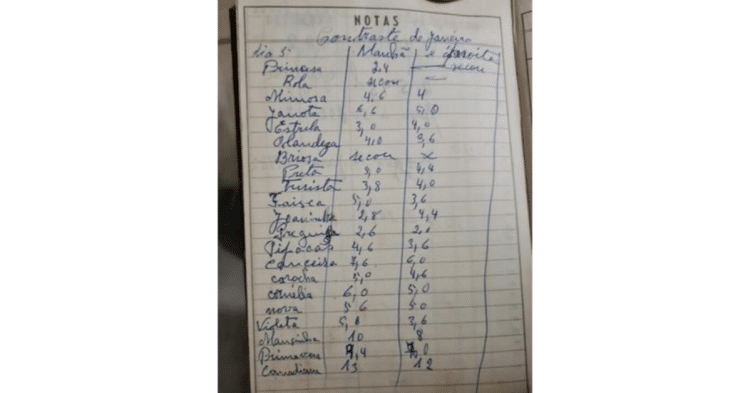 NOTAS
Contraste de Janeiro
dia 5 Manhã e á noite
Princesa 2,4 secou
Rola secou —
Mimosa 4,6 4
Janota 6,6 5,0
Estrela 3,0 4,0
Olandeza 4,0 3,6
Briosa secou x
Preta 5,0 4,4
Turista 3,8 4,0
Faisca 5,0 3,6
Joaninha 2,8 4,4
Preguiça 2,6 2,0
Pipocas 4,6 3,6
Canceira 7,6 6,0
carocha 5,0 4,6
comélia 6,0 5,0
nova 5 6 5 0
Violeta 5,0 3,6
Mansinha 10 8
Primavera 9,4 7,0
Canadiana 13 12